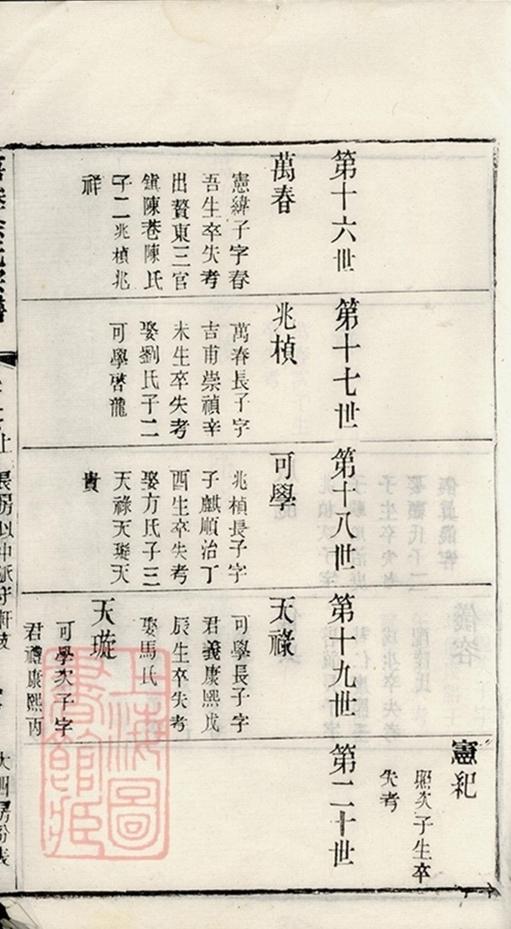 憲紀
照次子生卒
失考
第十六世
萬春
憲緯子字春
吾生卒失考
出贅東三官
鎮陳巷陳氏
子二兆楨兆
祥
第十七世
兆楨
萬春長子字
吉甫崇禎辛
未生卒失考
娶劉氏子二
可學啓龍
第十八世
可學
兆楨長子字
子麒順治丁
酉生卒失考
娶方氏子三
天祿天璇天
貴
第十九世
天祿
可學長子字
君義康熙戊
辰生卒失考
娶馬氏
天璇
可學次子字
君禮康熙丙
第二十世
上海圖
書館藏